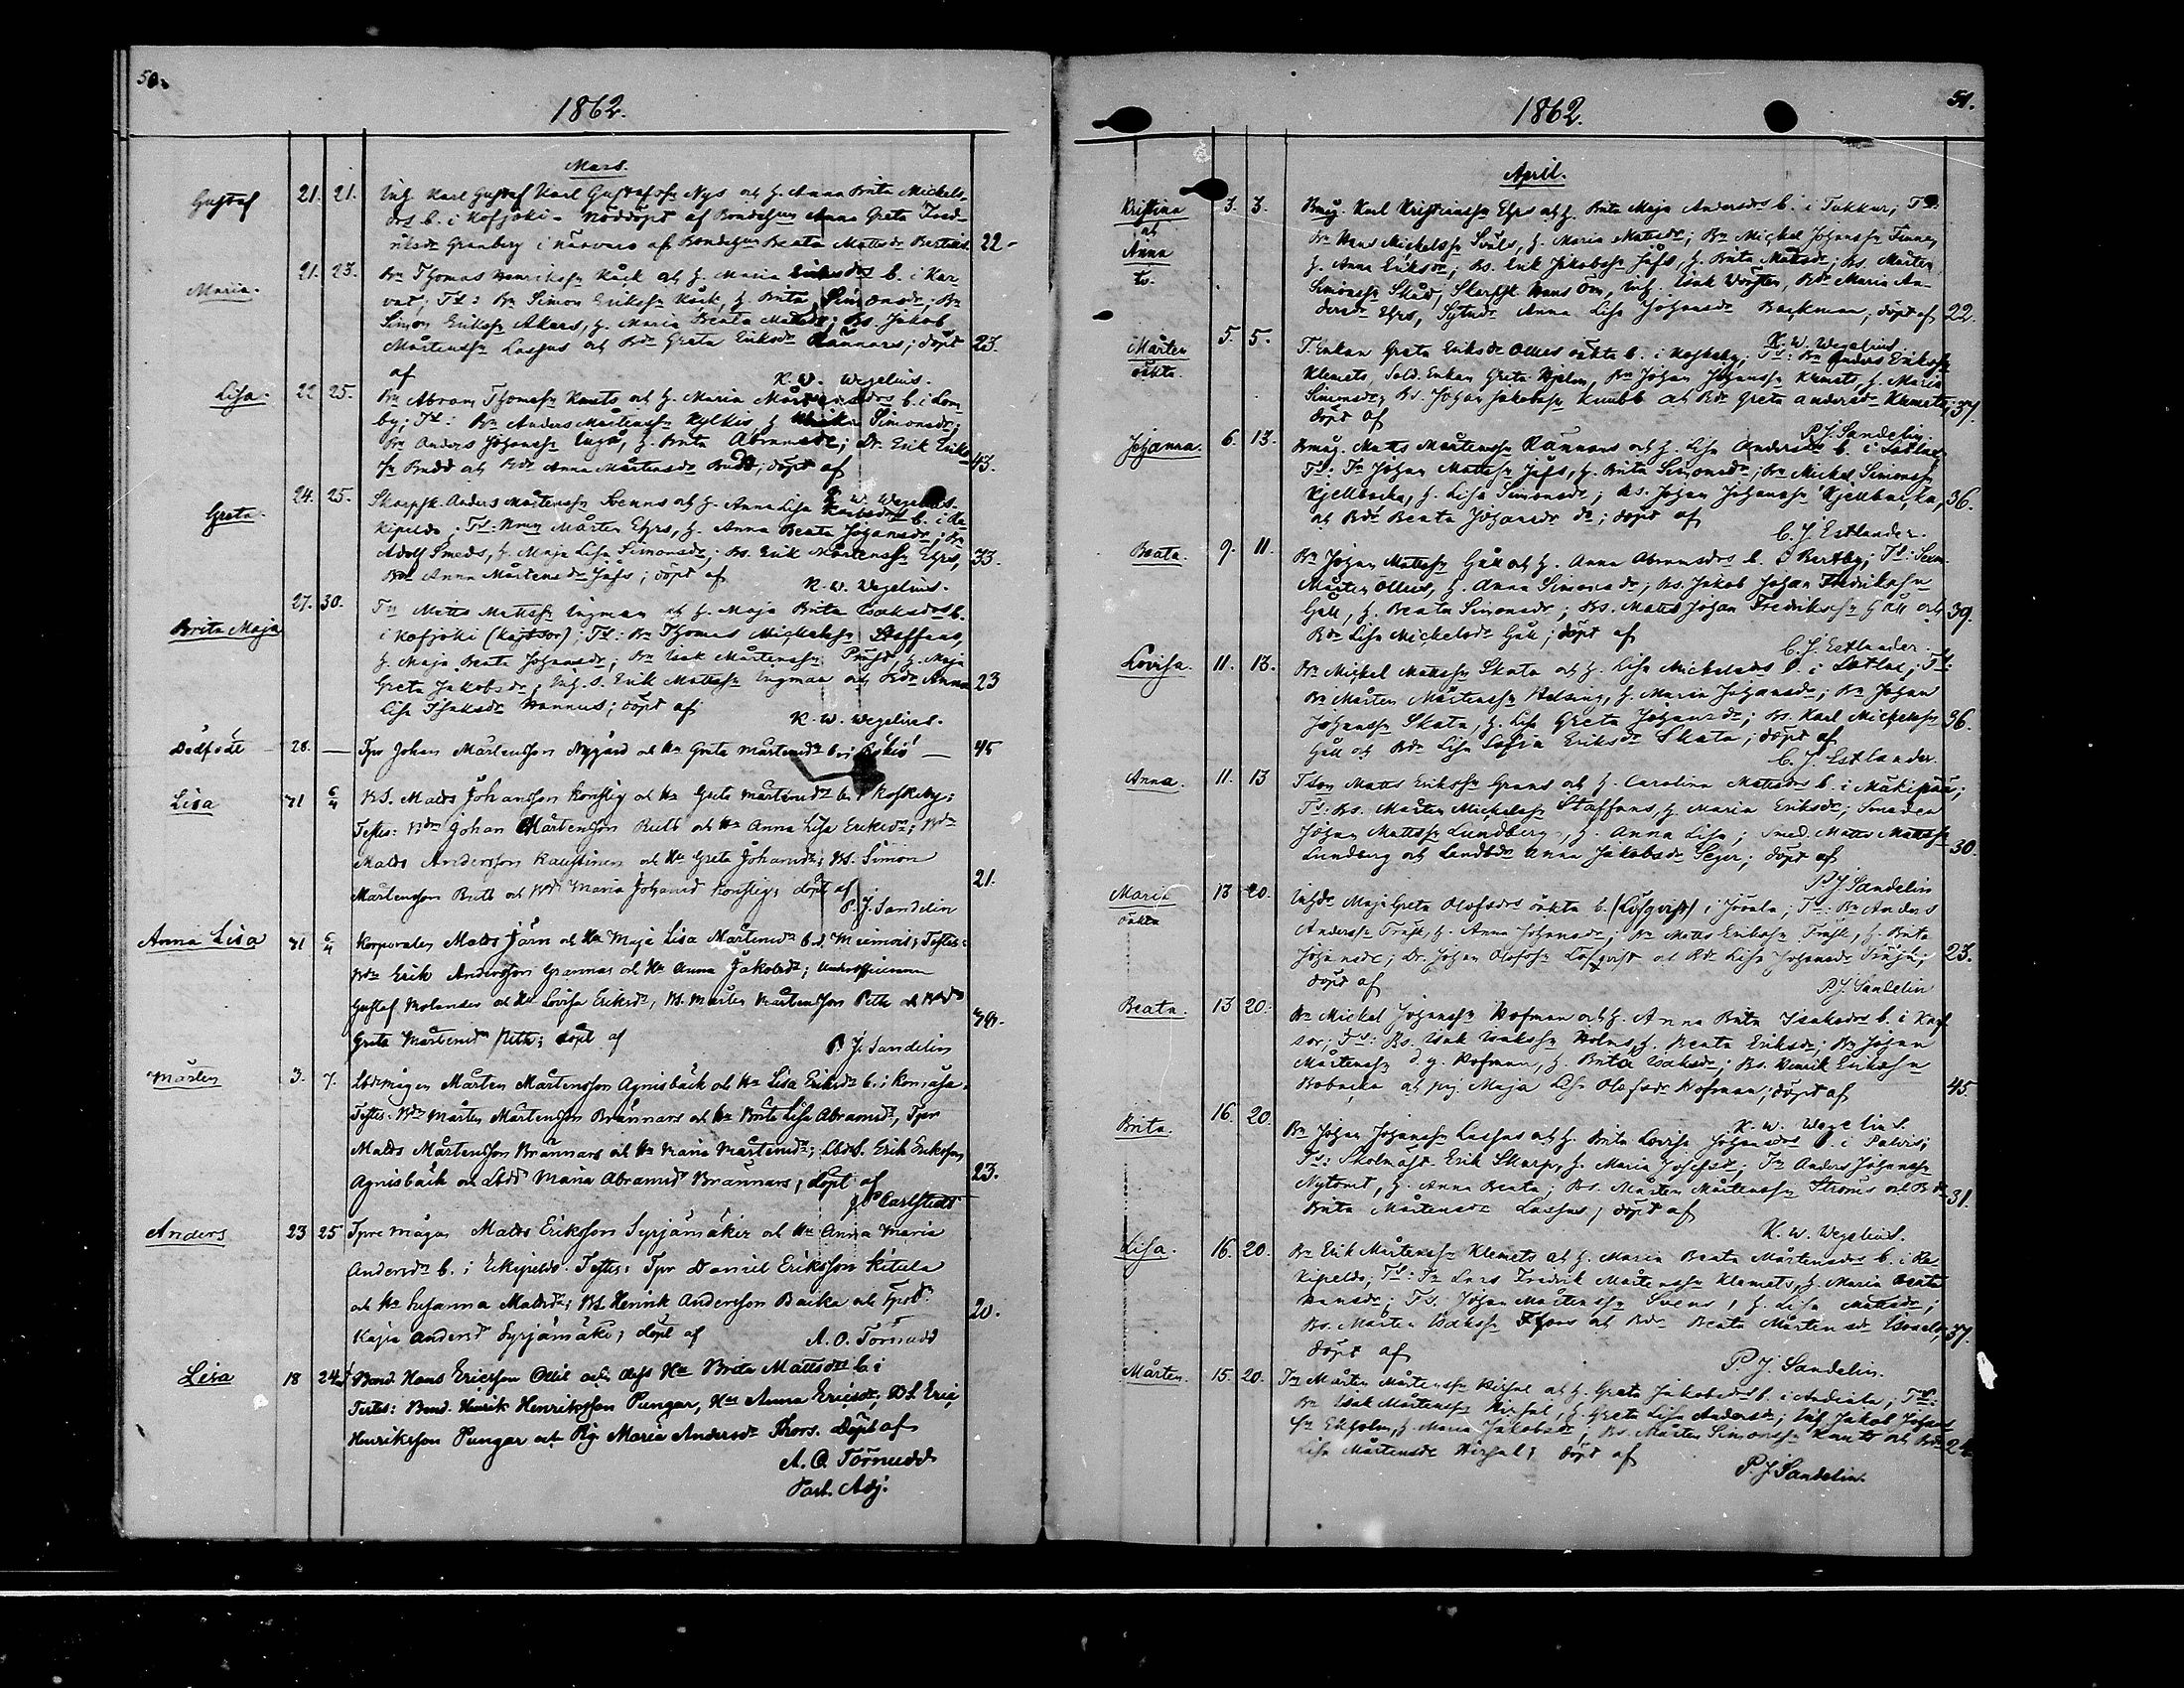 50.
1862.
Mars.
Gustaf 21. 21. Inh. Karl Gustaf Karl Gustafssn Nys och h. Anna Brita Mickels-
drs b. i Kofjoki. Nöddöpt af Bondehun Anna Greta Fred-
riksdr Granberg i närvaro af Bondehun Beata Mattsdr Bertils. 22.
Maria. 21. 23. Bn Thomas Henrikssn Kåck och h. Maria Eriksdrs b. i Kar-
vat; Ts: Bn Simon Erikssn Kåck, h. Brita Simonsdr; Bn
Simon Erikssn Akers, h. Maria Beata Mattsdr; Bs. Jakob
Mårtenssn Lassus och Bdr Greta Eriksdr Rännars; döpt 23.
af K. W. Wegelius.
Lisa. 22 25. Bn Abram Thomassn Knuts och h. Maria Mårtensdrs b. i Lom-
by; Ts: Bn Anders Mårtenssn Kylkis h. Simonsdr;
Bn Anders Johanssn Ingo, h. Brita Abramsdr; Dr. Erik Eriks-
sn Budd och Bdr Anna Mårtensdr Budd; döpt af 43.
K. W. Wegelius.
Greta. 24. 25. Skarpsk. Anders Mårtenssn Svenns och h. Anna Lisa b. i Re-
kipeldo; Ts: Mårten Ehrs, h. Anna Beata Johansdr; Bn
Adolf Smeds, h. Maja Lisa Simonsdr; Bs. Erik Mårtenssn Ehrs, 33.
Bdr Anna Mårtensdr Jåfs; döpt af K. W. Wegelius.
Brita Maja 27. 30. Tn Matts Mattssn Ingman och h. Maja Brita Isaksdrs b.
i Kofjoki (Kajtsor); Ts: Bn Thomas Mickelssn Staffans,
h. Maja Beata Johansdr; Bn Isak Mårtenssn h. Maja
Greta Jakobsdr; Inh. s. Erik Mattssn Ingman och Bdr Anna 23
Lisa Isaksdr Hannus; döpt af K. W. Wegelius.
Dödfödt 28. — Tpr Johan Mårtensson Nygård och Hu Greta Mårtensdr b. i Rökiö — 45
Lisa 31 6/4 BS. Matts Johansson Konstig och Hu Greta Mårtensdr b. i Koskeby;
Testes: Bdn Johan Mårtensson Butts och Hu Anna Lisa Eriksdr; Bdn
Matts Andersson Kaustinen och Hu Greta Johansdr; BS. Simon
Mårtensson Butts och Bdr Maria Johansd Konstig; döpt af 21.
P. J. Sandelin
Anna Lisa 31 6/4 Korporalen Matts Järn och Hu Maja Lisa Mårtensdr b. i Miemois; Testes:
Bdn Erik Andersson Grannas och Hu Anna Jakobsdr; Underofficeraren
Gustaf Molander och Hu Lovisa Eriksdr, BS. Mårten Mårtensson Peth och Bdr
Greta Mårtensd Peth; döpt af P. J. Sandelin
Mårten 3. 7. Lbdemågen Mårten Mårtensson Agnisbäck och Hu Lisa Eriksdr b. i Komåsa.
Testes: Bdn Mårten Mårtensson Brännars och Hu Brita Lisa Abramsdr, Tpr
Matts Mårtensson Brännars och Hu Maria Mårtensdr; Lbdes. Erik Eriksson
Agnisbäck och Lbdd Maria Abramsd Brännars; döpt af 23.
J. P. Carlstedt
Anders 23 25 Tpre mågen Matts Eriksson Syrjämäki och Hu Anna Maria
Andersdr b. i Rekipeldo. Testes: Tpr Daniel Eriksson Kitula
och Hu Susanna Mattsdr; BS. Henrik Andersson Backa och Tprd
Kajsa Andersd Syrjämäki; döpt af A. O. Törnudd 20.
Lisa 18 24 Bond. Hans Ericsson Ollil och dess Hu Brita Mattsdr b. i
Testes: Bond. Henrik Henriksson Pungar, Hu Anna Ericsdr, BS. Eric
Henriksson Pungar och Pig. Maria Andersdr Thors. Döpt af
A. O. Törnudd
Past. Adj.
51.
1862.
April.
Kristina och Anna tv. 3. 3. Bmåg. Karl Kristianssn Ehrs och h. Brita Maja Andersdrs b. i Tukkur; Ts:
Bn Hans Mickelssn Svåls, h. Maria Mattsdr; Bn Mickel Johanssn Finne,
h. Anna Eriksdr; Bs. Erik Jakobssn Jåfs, h. Brita Mattsdr; Bs. Mårten
Simonssn Skåd, Skarpsk. Hans Öen, Inh. Isak Wörgren, Bdr Maria An-
dersdr Ehrs, Sytndr Anna Lisa Johansdr Backman; döpt af 22.
K. W. Wegelius.
Mårten oäkta. 5. 5. T.Enkan Greta Eriksdr Ollies oäkta b. i Koskeby; Ts: Bn Anders Erikssn
Klemets, Sold. Enkan Greta Hjelm, Bn Johan Johanssn Klemets, h. Maria
Simonsdr, Bs. Johan Jakobssn Knubb och Bdr Greta Andersdr Klemets; 37.
döpt af P. J. Sandelin.
Johanna. 6. 13. Bmåg. Matts Mårtenssn Rännars och h. Lisa Andersdrs b. i Lotlax
Ts: Tn Johan Mattssn Jåfs, h. Brita Simonsdr; Bn Mickel Simonssn
Kjellbacka, h. Lisa Simonsdr; Bs. Johan Johanssn Kjellbacka, 36.
och Bdr Beata Johansdr do; döpt af
C. J. Estlander.
Beata. 9. 11. Bn Johan Mattssn Gåll och h. Anna Abramsdrs b. i Bertby; Ts: Sexm.
Mårten Ollius, h. Anna Simonsdr; Bs. Jakob Johan Fredrikssn
Gåll, h. Beata Simonsdr; Bs. Matts Johan Fredrikssn Gåll och 39.
Bdr Lisa Mickelsdr Gåll; döpt af
C. J. Estlander.
Lovisa. 11. 13. Bn Mickel Mattssn Skata och h. Lisa Mickelsdrs b. i Lotlax; Ts:
Bn Mårten Mårtenssn Helsing, h. Maria Johansdr; Bn Johan
Johanssn Skata, h. Lisa Greta Johansdr; Bs. Karl Mickelssn 36.
Gåll och Bdr Lisa Sofia Eriksdr Skata; döpt af
C. J. Estlander.
Anna. 11. 13 Matts Erikssn Grans och h. Carolina Mattsdrs b. i Mäkipää;
Ts: Bs. Mårten Mickelssn Staffans, h. Maria Eriksdr; Smeden
Johan Mattssn Lundberg, h. Anna Lisa; Smed. Matts Mattssn
Lundberg och Landbdr Anna Jakobsdr Seger; döpt af 30.
P. J. Sandelin
Maria oäkta 13 20. Inhdr Maja Greta Olofsdrs oäkta b. (Löfqvist) i Jörala; Ts: Bn Anders
Anderssn h. Anna Johansdr; Bn Matts Erikssn h. Brita
Johansdr; Dr. Johan Olofssn Löfqvist och Bdr Lisa Johansdr 23.
döpt af P. J. Sandelin
Beata. 13 20. Bn Mickel Johanssn Hofman och h. Anna Brita Isaksdrs b. i Kajt-
sor; Ts: Bs. Isak Isakssn Holms, h. Beata Eriksdr; Bn Johan
Mårtenssn d. y. Hofman, h. Brita Isaksdr; Bs. Henrik Erikssn
Bobacka och pig. Maja Lisa Olofsdr Hofman; döpt af 45.
K. W. Wegelius.
Brita. 16. 20. Bn Johan Johanssn Lassus och h. Brita Lovisa Johansdrs b. i Palvis;
Ts: Skolmäst. Erik Skarp, h. Maria Josefsdr; Tn Anders Johanssn
Nytomt, h. Anna Beata; Bs. Mårten Mårtenssn Ströms och Bdr 31.
Brita Mårtensdr Lassus; döpt af
K. W. Wegelius.
Lisa. 16. 20. Bn Erik Mårtenssn Klemets och h. Maria Beata Mårtensdrs b. i Re-
kipeldo; Ts: Tn Lars Fredrik Mårtenssn Klemets, h. Maria Beata
Hansdr; Ts. Johan Mårtenssn Svens, h. Lisa Mattsdr;
Bs. Mårten Isakssn Thors och Bdr Beata Mårtensdr 37.
döpt af P. J. Sandelin.
Mårten. 15. 20. Tn Mårten Mårtenssn Kirsal och h. Greta Jakobsdrs b. i Andiala; Ts:
Bn Isak Mårtenssn Kirsal, h. Greta Lisa Andersdr; Inh. Jakob Johans-
sn Ekholm, h. Maria Jakobsdr; Bs. Mårten Simonssn Knuts och Bdr 24
Lisa Mårtensdr Kirsal; döpt af
P. J. Sandelin.